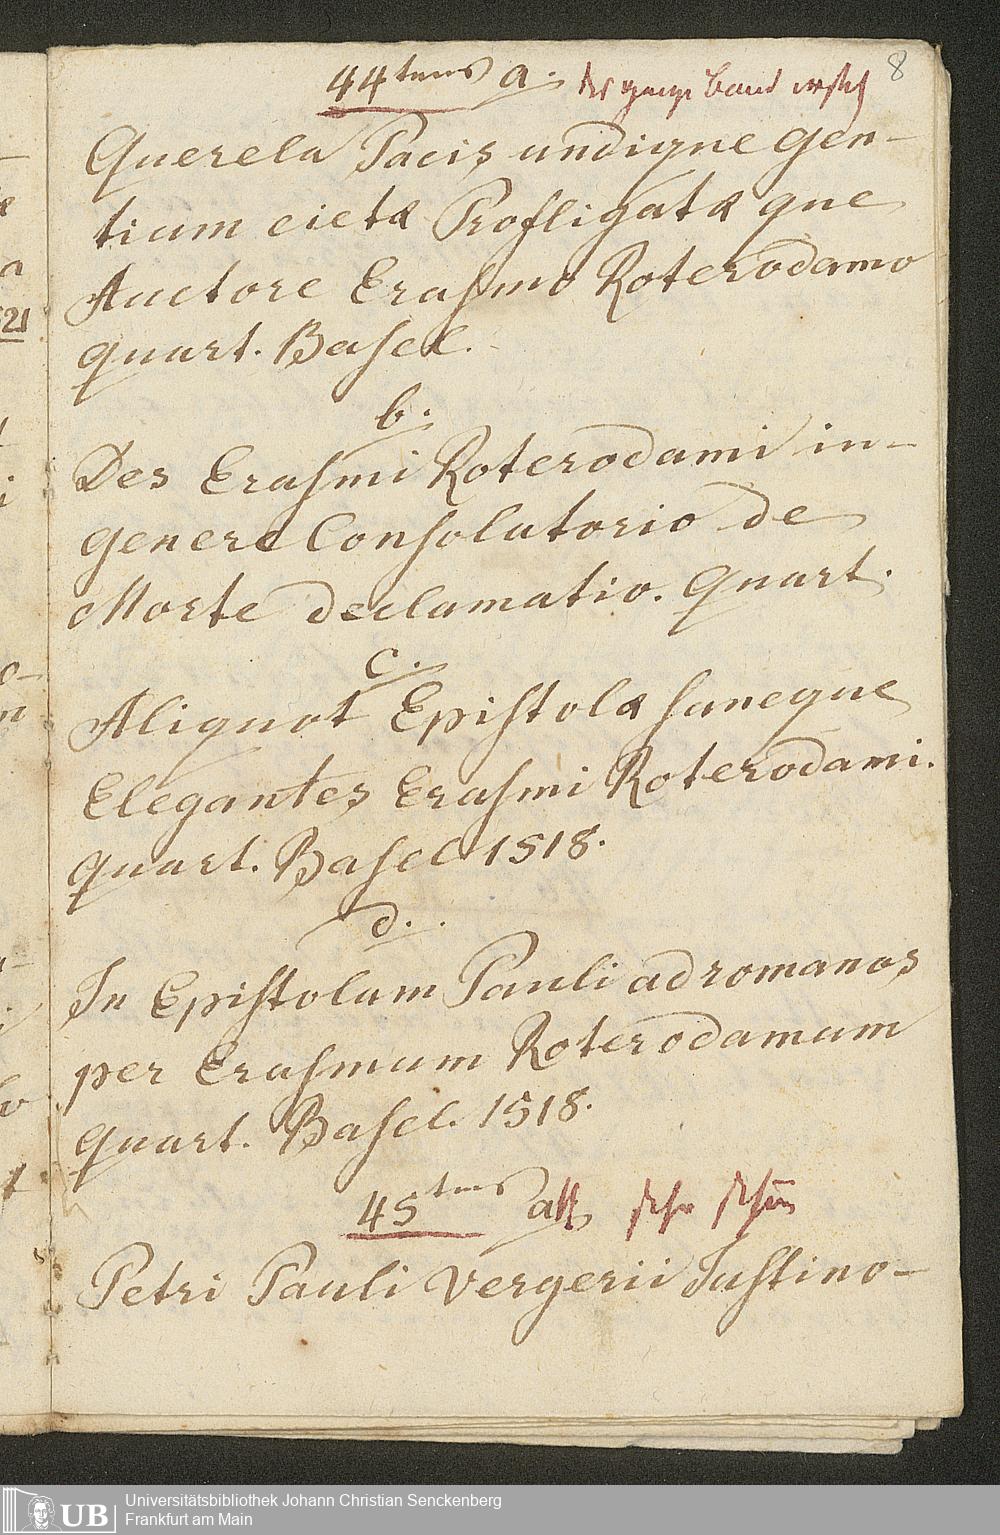 44tens a. der ganze Band
8
Querela Pacis undique gen-
tium eietæ Profligatæ que
Auctore Erasmo Roterodamo
quart. Basel.
b.
Des Erasmi Roterodami in-
genere Consolatorio de
Morte declamatio. Quart.
c.
Aliquot Epistolæ saneque
Elegantes Erasmi Roterodami.
quart. Basel 1518.
d.
In Epistolam Pauli ad romanos
per Erasmum Roterodamum
quart. Basel. 1518.
45tens a sehr schön
Petri Pauli Vergerii Justino-
521
UB
Universitätsbibliothek Johann Christian Senckenberg
Frankfurt am Main